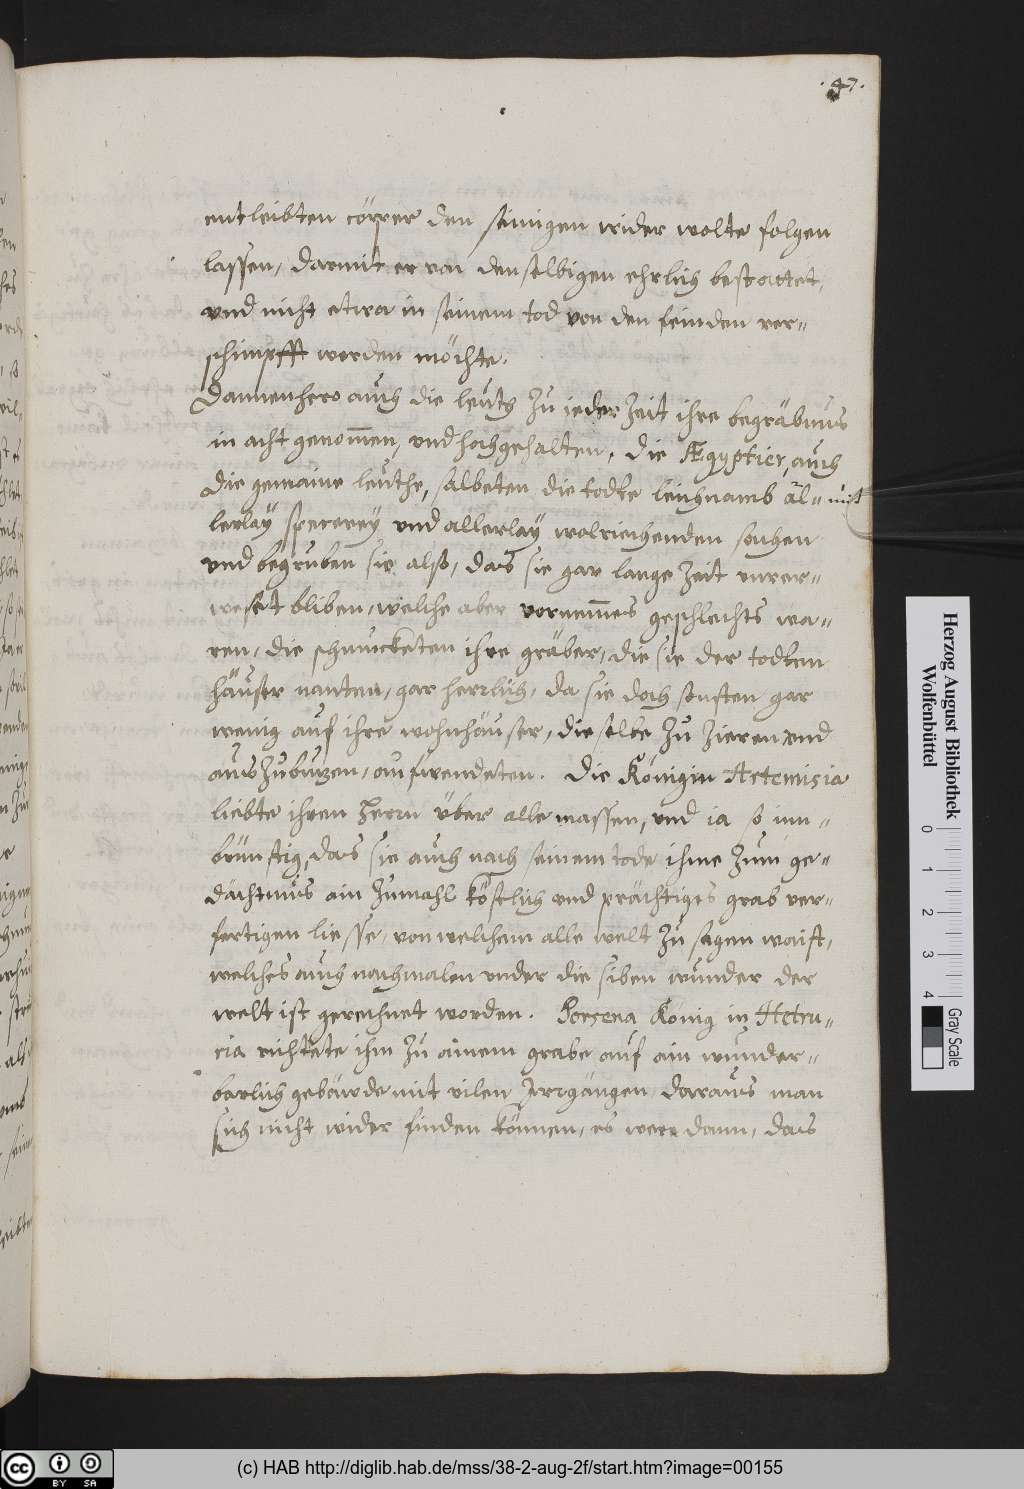 .47.
entleibten cörper den seinigen wider wolte folgen
lassen, darmit er von denselbigen ehrlich bestattet,
vnd nicht etwa in seinem tod von den feinden ver-
schimpfft werden möchte.
Dannenhero auch die leuth zu jeder zeit ihre begräbnus
in acht genom̄en, vnd hochgehalten. die Ægyptier, auch
die gemaine leuthe, salbeten die todte leichnamb mit
al-
lerlay specerey vnd allerlay wolriechenden sachen
vnd begruben sie also, das sie gar lange zeit vnver-
weset bliben, welche aber vornem̄es geschlechts wa-
ren, die schmucketen ihre gräber, die sie der todten
häuser nanten, gar herrlich, da sie doch sonsten gar
wenig auf ihre wohnhäuser, dieselbe zu zieren vnd
auszubuzen, aufwendeten. Die Königin Artemisia
liebte ihren Herrn über alle massen, vnd ia so inn-
brünstig, das sie auch nach seinem tode ihme zum ge-
dächtnus ain zumahl köstlich vnd prächtiges grab ver-
fertigen liesse, von welchem alle welt zu sagen waist,
welches auch nachmalen vnder die siben wunder der
welt ist gerechnet worden. Porsena König in Hetru-
ria richtete ihm zu ainem grabe auf ain wunder-
barlich gebäwde mit vilen Irrgängen, daraus man
sich nicht wider finden können, es were dann, das
Herzog August Bibliothek
Wolfenbüttel
0 1 2 3 4
Gray Scale
cc BY SA
(c) HAB http://diglib.hab.de/mss/38-2-aug-2f/start.htm?image=00155